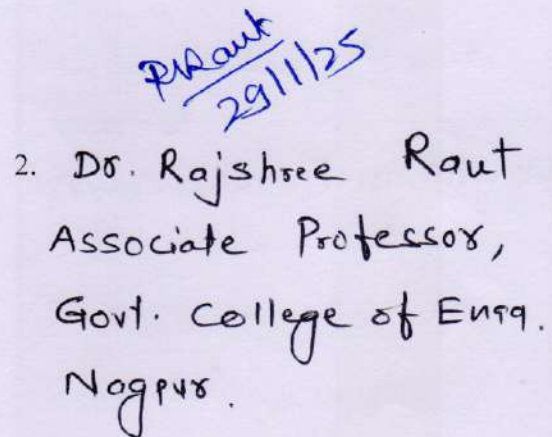 RRaut
29/1/25
2. Dr. Rajshree Raut
Associate Professor,
Govt. College of Engg.
Nagpur.